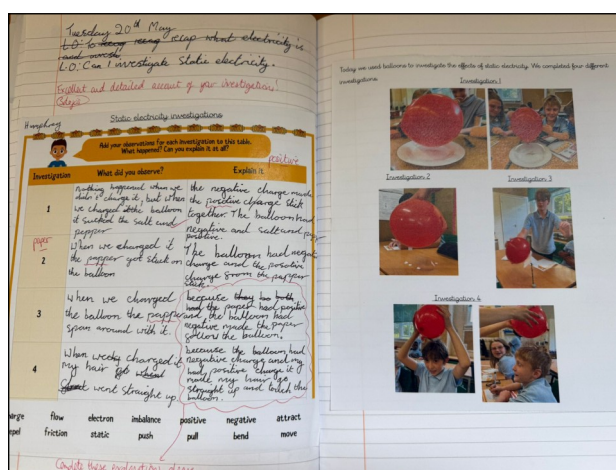 Tuesday 20th May
L.O: To recap what electricity is
L.O: Can I investigate static electricity.
Excellent and detailed account of your investigation!
3 steps
Humphrey
Static electricity investigations
Add your observations for each investigation to this table.
What happened? Can you explain it at all?
positive
Investigation
What did you observe?
Explain it.
1
nothing happened when we
didn't charge it, but when
we charged the balloon
it sucked the salt and
papper
the negative charge made
the positive charge stick
together. The balloon had
negative and salt and papper
positive.
paper
2
When we charged it
the papper got stuck on
the balloon
The balloon had negative
charge and the posotive
charge from the papper
stuck.
3
When we charged
the balloon the papper
span around with it.
because
had the paper had positive
and the balloon had
negative made the paper
follow the balloon.
4
When charged it
my hair
went straight up
because the balloon had
negative charge and my
had positive charge it
made my hair go
straight up and touch the
balloon.
flow
electron
imbalance
positive
negative
attract
friction
static
push
pull
bend
move
Complete these
Today we used balloons to investigate the effects of static electricity. We completed four different
investigations.
Investigation 1
Investigation 2
Investigation 3
Investigation 4